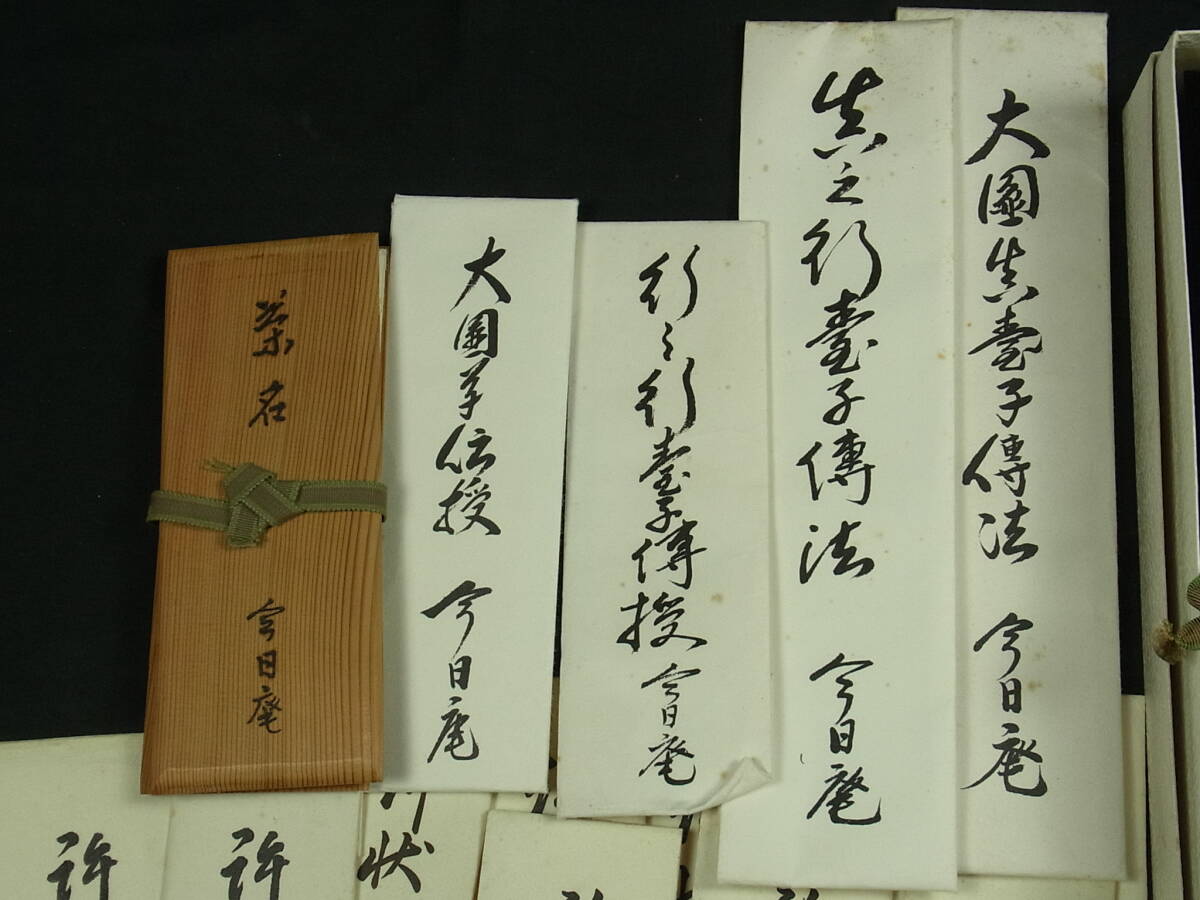 大圓真臺子傳法 今日庵
真之行臺子傳法 今日庵
行之行臺子傳授 今日庵
大圓草伝授 今日庵
茶名 今日庵
状
許
許